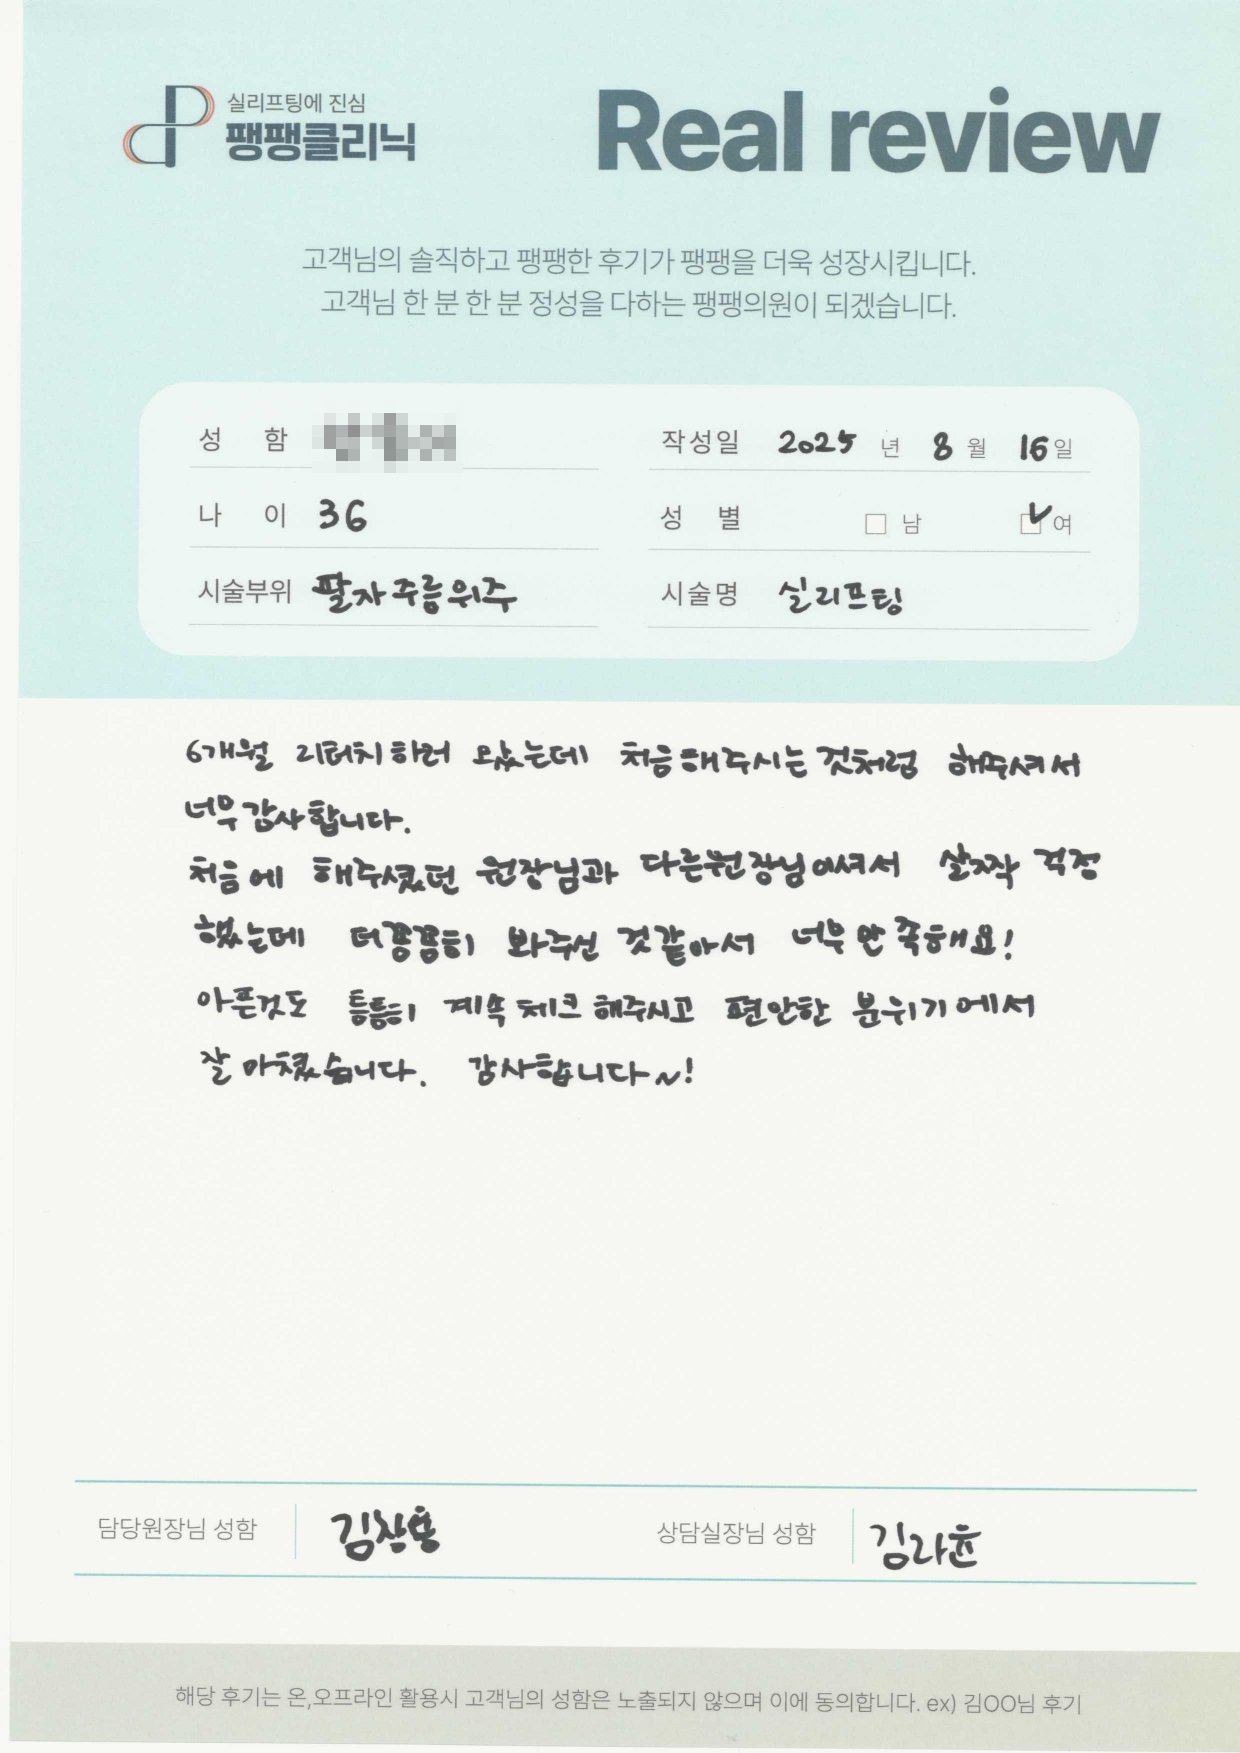 실리프팅에 진심
팽팽클리닉
Real review
고객님의 솔직하고 팽팽한 후기가 팽팽을 더욱 성장시킵니다.
고객님 한 분 한 분 정성을 다하는 팽팽의원이 되겠습니다.
성 함
작성일 2025 년 8 월 16 일
나 이 36
성 별 남 여
시술부위 팔자주름위주
시술명 실리프팅
6개월 리터치하러 왔는데 처음해주시는것처럼 해주셔서
너무감사합니다.
처음에 해주셨던 원장님과 다른원장님이셔서 살짝 걱정
했는데 더꼼꼼히 봐주신 것같아서 너무만족해요!
아픈것도 틈틈히 계속체크해주시고 편안한 분위기에서
잘 마쳤습니다. 감사합니다~!
담당원장님 성함 김창용
상담실장님 성함 김라윤
해당 후기는 온,오프라인 활용시 고객님의 성함은 노출되지 않으며 이에 동의합니다. ex) 김OO님 후기